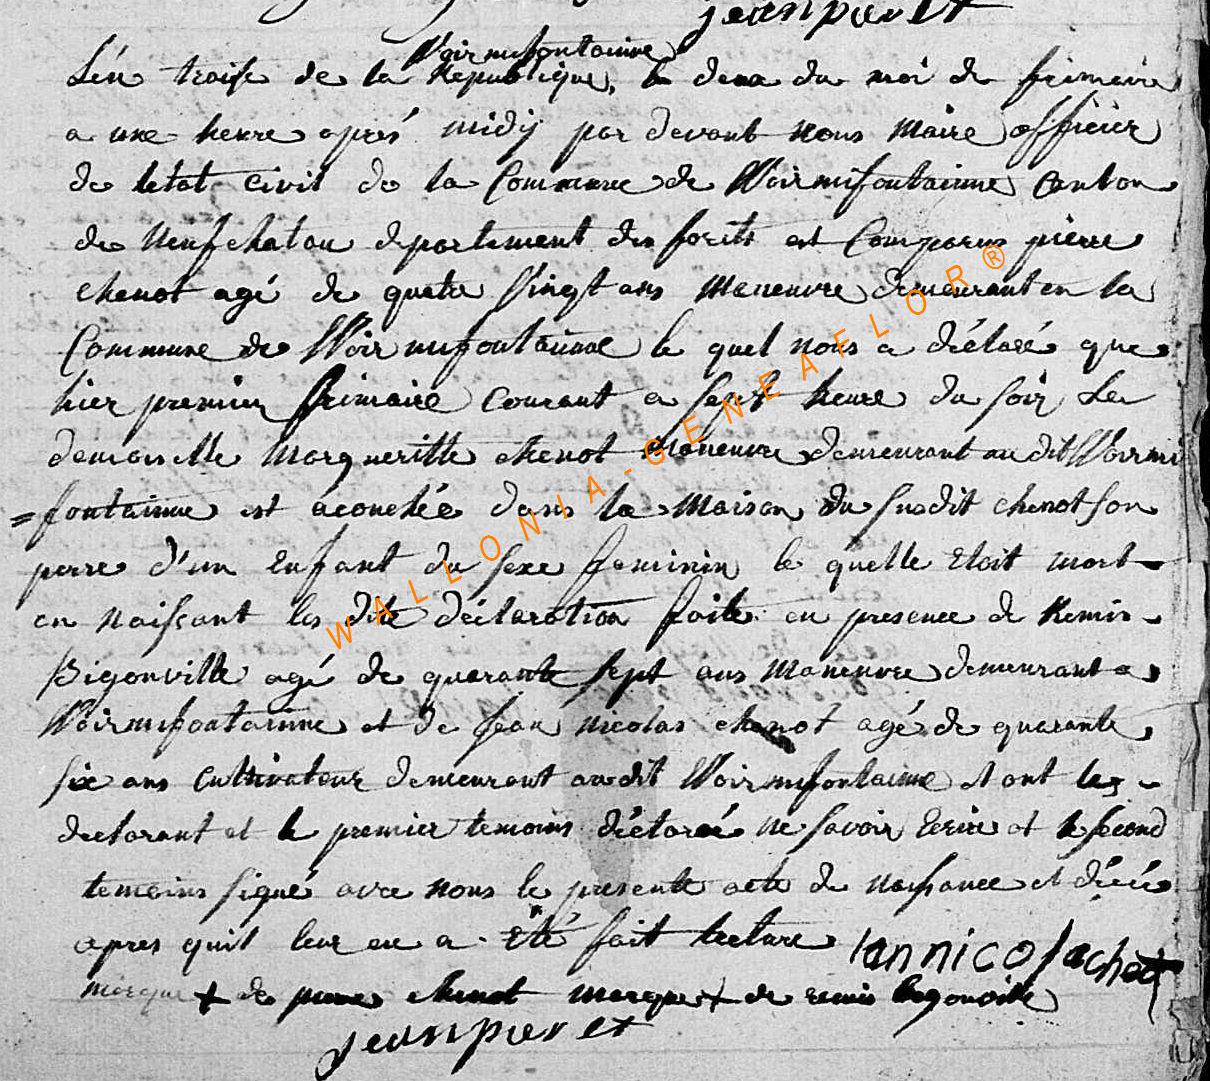 jeanpieret
Woirmifontainne
L'én treise de la Republique, le deux du moi de frimaire
a une heure aprés midÿ par devant nous Maire officier
de letat civil de la Commune de Woirmifontainne Canton
de Neufchatau departement des forêts est Comparus pierre
chenot agé de quatre Vingt ans Maneuvre demeurant en la
Commune de Woirmifontainne le quel nous a déclaré que
hier premier frimaire Courant a sept heure du soir La
demoiselle Margueritte chenot Maneuvre demeurant au dit Woirmi
=fontainne est acouchée dans la Maison du susdit chenot son
perre d'un Enfant du sexe feminin le quelle Etoit mort
en Naissant les dite déclaration faite en presence de Remis
Bigonville agé de quarante sept ans Maneuvre demeurant a
Woirmifontainne et de Jean Nicolas chenot agé de quarante
six ans Cultivateur demeurant audit Woirmifontainne et ont les
declarant et le premier temoins déclaré ne savoir Ecrire et le second
temoins signé avec nous le presente acte de Naissance et décés
apres quil leur en a Eté fait lecture
marque + de pierre chenot marque + de remis bigonville
jeanpieret
WALLONIA-GENEAFLOR®